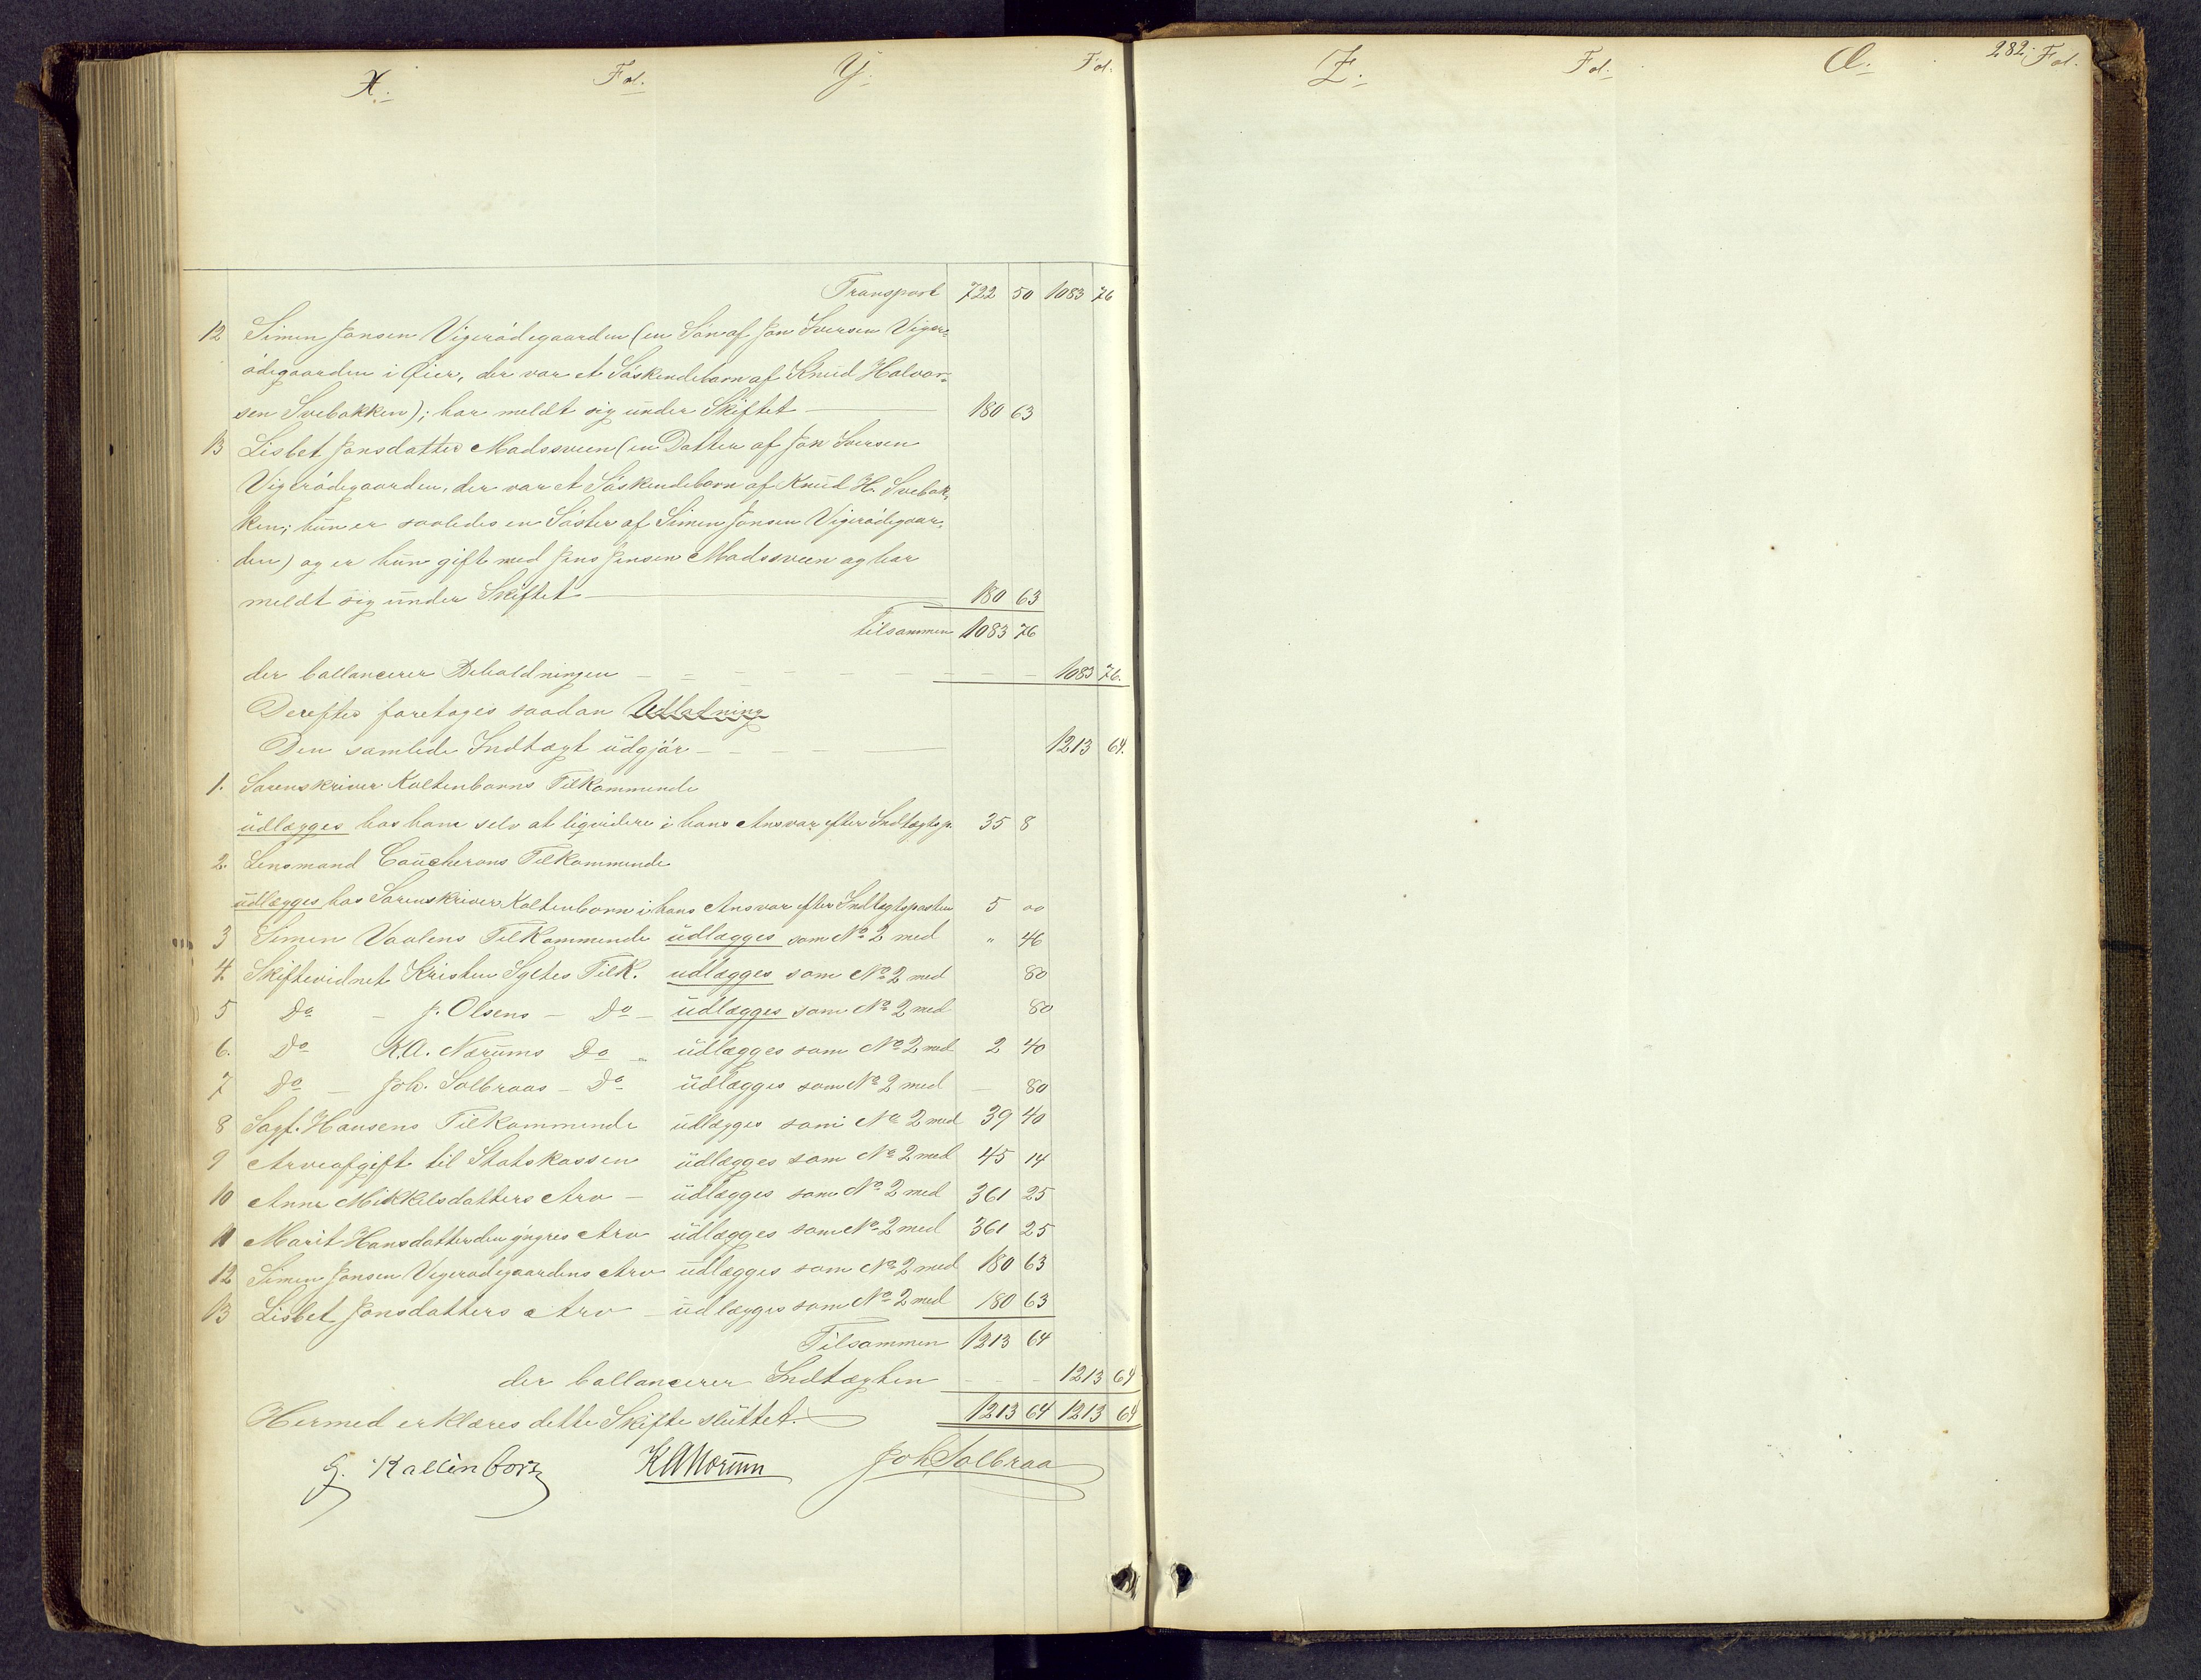 X. Fol. Y. Fol.
Transport 722 50 1083 76
12 Simen Jonsen Vigerødegaarden (en Søn af Jon Iversen Viger=
ødegaarden i Øier, der var et Søskendebarn af Knud Halvor=
sen Svebakken); har meldt sig under Skiftet 180 63
13 Lisbet Jonsdatter Madssveen (en Datter af Jon Iversen
Vigerødegaarden, der var et Søskendebarn af Knud H. Svebak,
ken; hun er saaledes en Søster af Simen Jonsen Vigerødegaar,
den) og er hun gift med Jens Jensen Madssveen og har
meldt sig under Skiftet 180 63
Tilsammen 1083 76
der ballancerer Beholdningen 1083 76.
Derefter foretoges saadan Udlodning
Den samlede Indtægt udgjør 1213 64.
1. Sorenskriver Kaltenborns Tilkommende
udlægges hos ham selv at liqvidere i hans Ansvar efter Indtægtsp. 35 8
2. Lensmand Coucherons Tilkommende
udlægges hos Sorenskriver Kaltenborn i hans Ansvar efter Indtægtsposten 5 00
3 Simen Vaalens Tilkommende udlægges som No 2 med " 46
4. Skiftevidnet Kristen Sgltes Tilk. udlægges som No 2 med 80
5 Do - J. Olsens - Do - udlægges som No 2 med 80
6. Do K.A. Norums Do " udlægges som No 2 med 2 40
7 Do - Joh. Solbraas - Do udlægges som No 2 med - 80
8 Sagf. Hansens Tilkommende udlægges som No 2 med 39 40
9 Arveafgift til Statskassen udlægges som No 2 med 45 14
10 Anne Mikkelsdatters Arv - udlægges som No 2 med 361 25
11 Marit Hansdatter den yngres Arv udlægges som No 2 med 361 25
12 Simen Jonsen Vigerødegaardens Arv udlægges som No 2 med 180 63
13 Lisbet Jonsdatters Arv - udlægges som No 2 med 180 63
Tilsammen 1213 64
der ballancerer Indtægten 1213 64
Hermed erklæres dette Skifte sluttet. 1213 64 1213 64
G. Kaltenborn KANorum Joh. Solbraa
Z. Fol. Æ. 282. Fol.